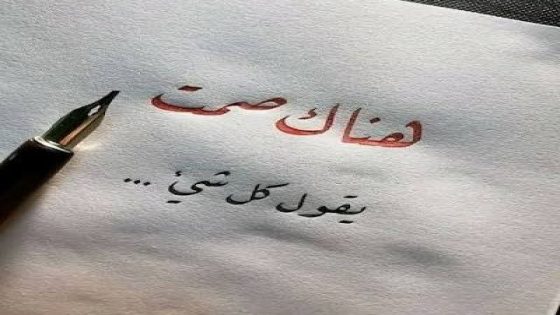 هناك صمت
يقول كل شيئ ...